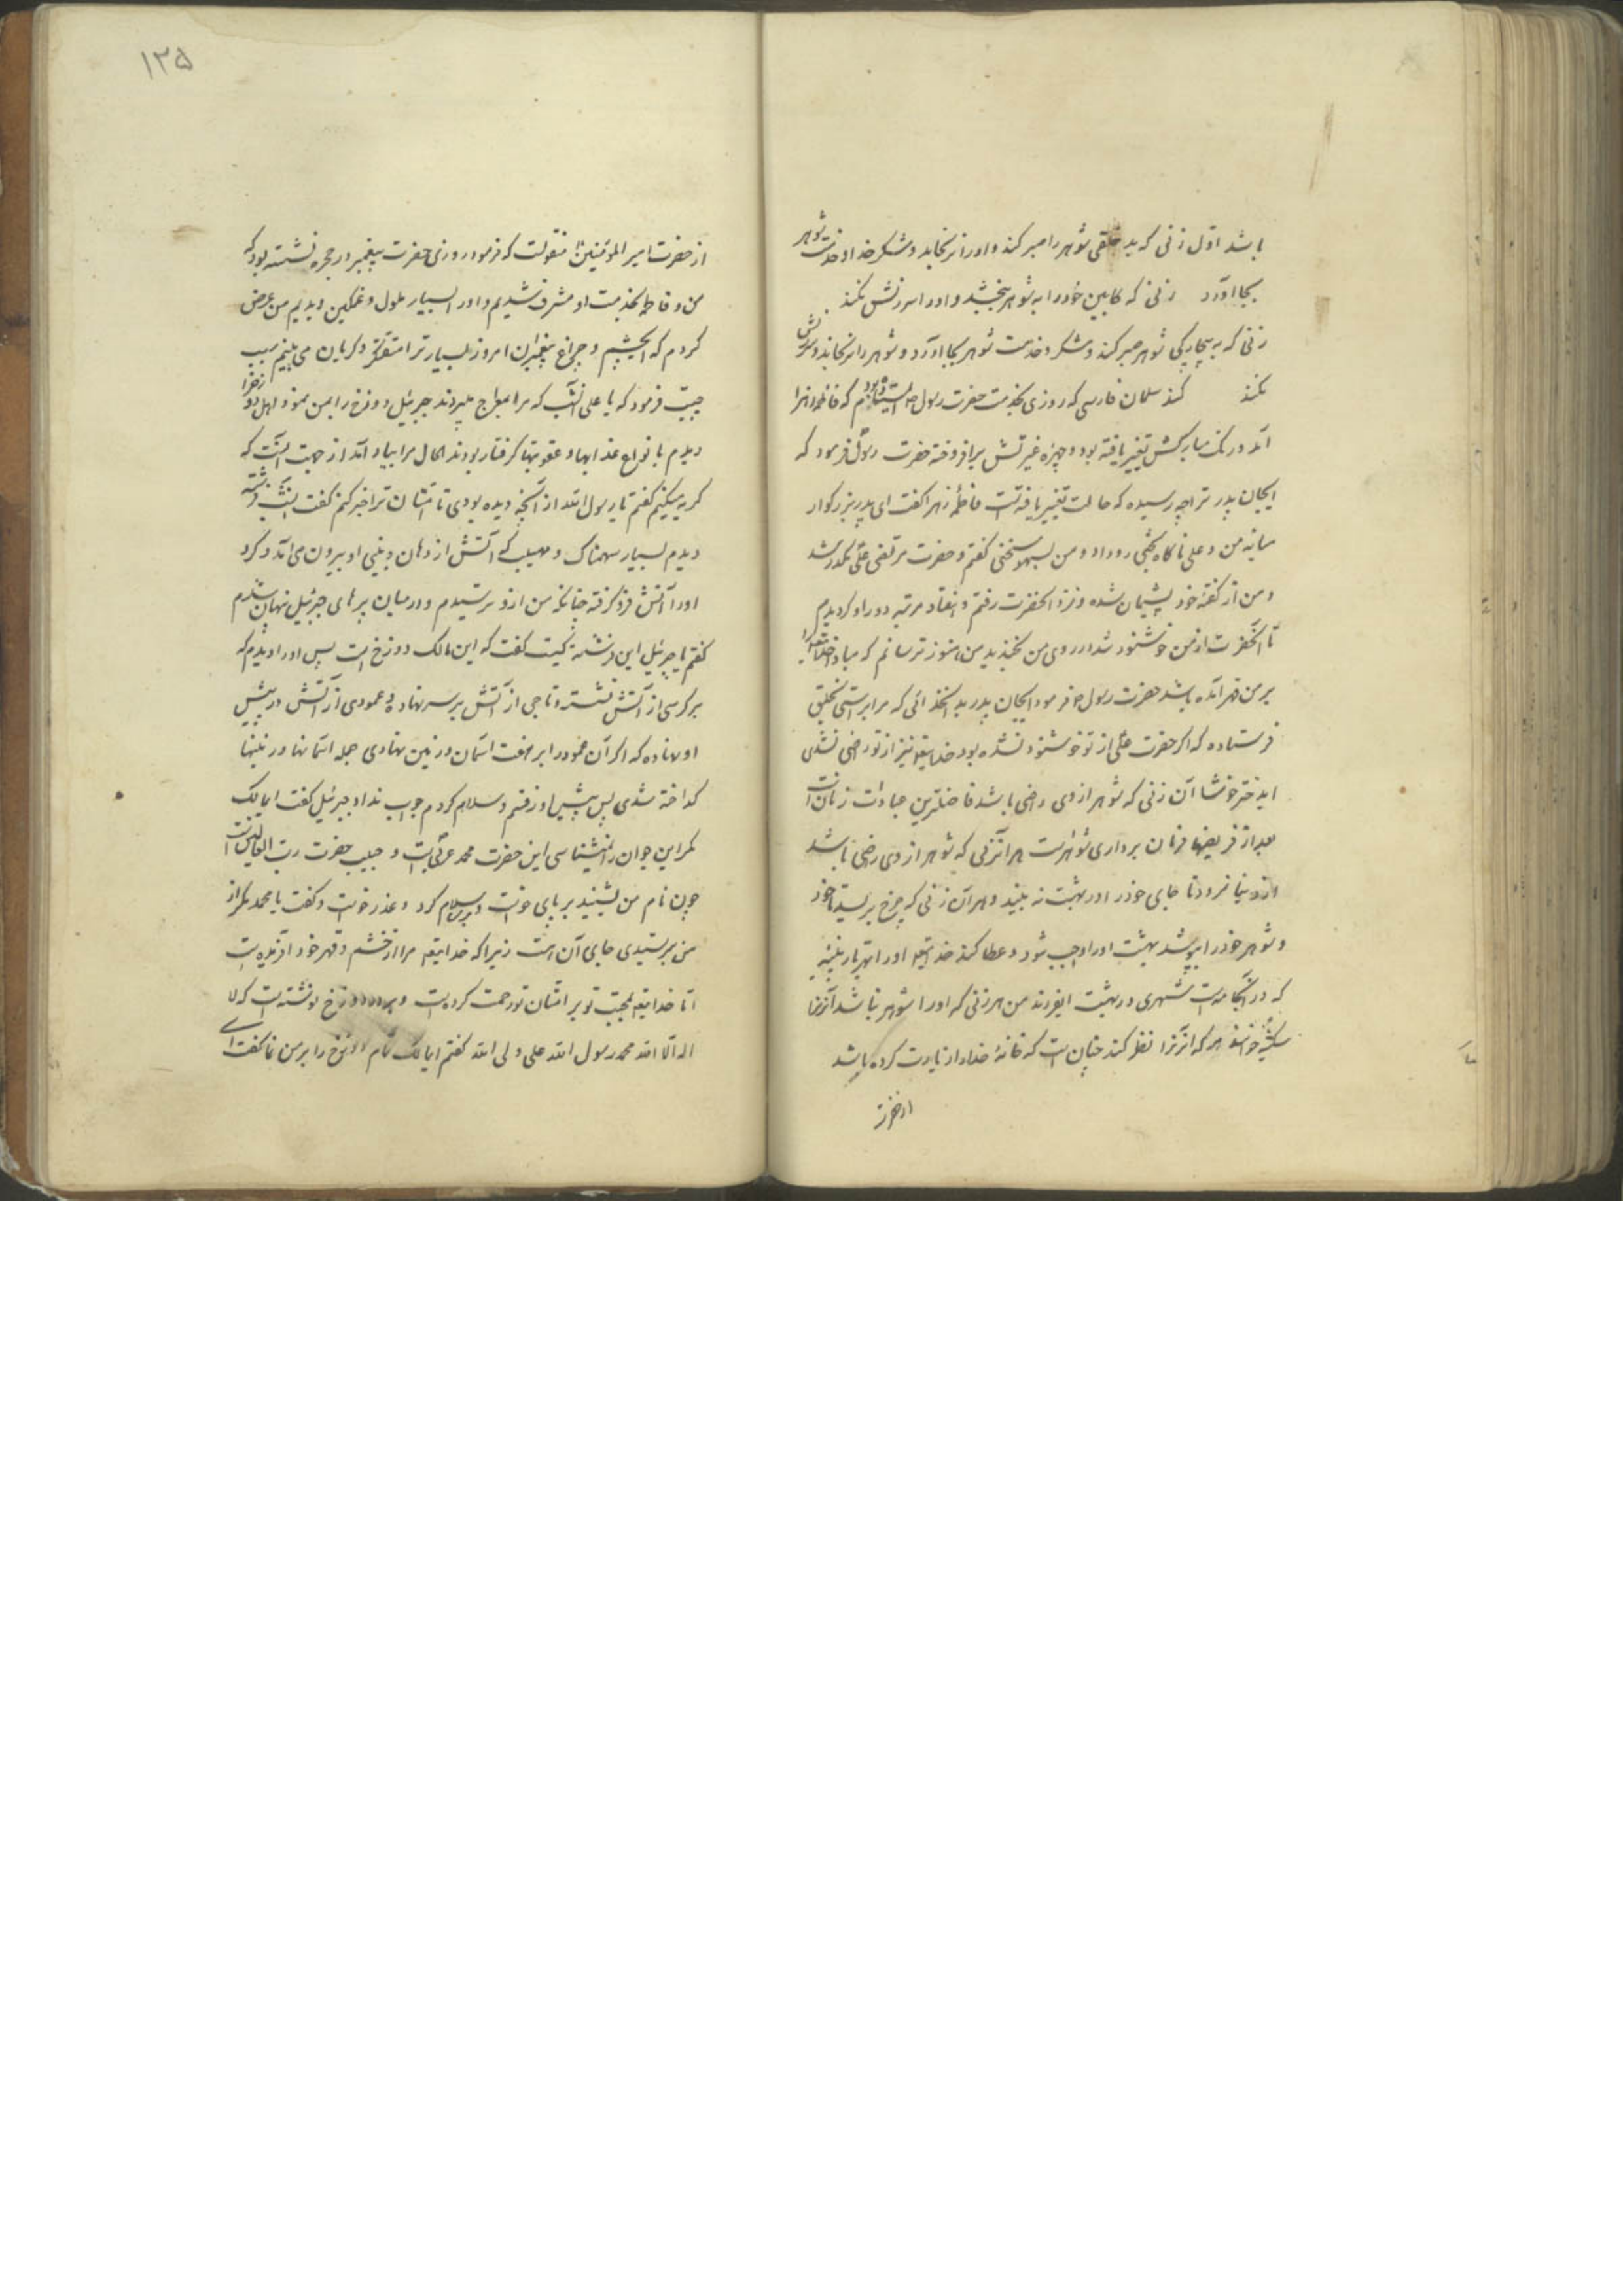 باشد اول زنی که بد خلقی شوهر را صبر کند و او را نرنجاند و شکر خدا و خدمت شوهر
بجا آورد زنی که کابین خود را به شوهر بخشد و او را سرزنش نکند
زنی که به بیچارکی شوهر صبر کند و شکر و خدمت شوهر بجا آورد و شوهر را نرنجاند و سرزنش
نکند کند سلمان فارسی که روزی بخدمت حضرت رسول ص ایستاده بودم که فاطمه زهرا
آمد و رنک مبارکش تغییر یافته بود و چهره غیرتش برافروخته حضرت رسول فرمود که
ایجان پدر ترا چه رسیده که حالت تغییر یافته است فاطمهٔ زهرا کفت ای پدر بزرکوار
میانه من و علی ناکاه بحثی رو داد و من بسهو سخنی کفتم و حضرت مرتضی علی مکدر شد
و من از کفتهٔ خود پشیمان شده و نزد آنحضرت رفتم و هفتاد مرتبه دور او کردیدم
تا آنحضرت از من خوشنود شد در روی من بخندید من هنوز ترسانم که مبادا خدایتعالی
بر من قهر آمده باشد حضرت رسول ص فرمود ایجان پدر بدانخدائی که مرا براستی بخلق
فرستاده که اکر حضرت علی از تو خوشنود نشده بود خدایتعه نیز از تو راضی نشدی
ایدختر خوشا آن زنی که شوهر از وی راضی باشد فاضلترین عبادات زنان است
بعد از فریضها فرمان برداری شوهر است هر آنزنی که شوهر از وی راضی نباشد
از دنیا نرود تا جای خود را در بهشت نه بیند و هر آن زنی که چرخ بریسد تا خود
و شوهر خود را بپوشد بهشت او را واجب شود و عطا کند خدایتعه او را بهر تار
که در آنجامه است شهری در بهشت ایفرزند من هر زنی که او را شوهر نباشد آنرنرا
هر که آنرنرا نظر کند چنان است که خانهٔ خدا را زیارت کرده باشد
از حضرت
۱۳۵
از حضرت امیر المؤمنین منقولست که فرمود روزی حضرت پیغمبر در حجره نشسته بود که
من و فاطمه بخدمت او مشرف شدیم و او را بسیار ملول و غمکین دیدیم من عرض
کردم که ایچشم و چراغ پیغمبران امروز بسیار ترا متفکر و کریان می بینم سبب
چیست فرمود که یا علی آنشب که مرا بمعراج میبردند جبرئیل دوزخ را بمن نمود اهل دوزخ را
دیدم بانواع عذابها و عقوبتها کرفتار بودند الحال مرا بیاد آمد از جهت آنست که
کریه میکنم کفتم یا رسول الله از آنچه دیده بودی تا امتان ترا خبر کنم کفت آنشب فرشته
دیدم بسیار سهمناک و مهیب که آتش از دهان و بینی او بیرون می آمد و کرد
او را آتش فرو کرفته چنانکه من ازو ترسیدم و در میان پرهای جبرئیل نهان شدم
کفتم یا جبرئیل این فرشته کیست کفت که این مالک دوزخ است پس او را دیدم که
بر کرسی از آتش نشسته و تاجی از آتش بر سر نهاده و عمودی از آتش در پیش
او نهاده که اکر آن عمود را بر هفت آسمان و زمین نهادی جمله آسمانها و زمینها
کداخته شدی پس پیش او رفتم و سلام کردم جواب نداد جبرئیل کفت ایمالک
مکر این جوان را نمیشناسی این حضرت محمد عربی است و حبیب حضرت رب العالمین است
چون نام من بشنید بر پای خواست و بر من سلام کرد و عذر خواست و کفت یا محمد مکر از
من بترسیدی جای آن است زیرا که خدایتعه مرا از خشم و قهر خود آفریده است
اما خدایتعه بمحبت تو بر امتان تو رحمت کرده است و بر در دوزخ نوشته است که لا
اله الا الله محمد رسول الله علی ولی الله کفتم ایمالک تمام دوزخ را بر من نما کفت ای